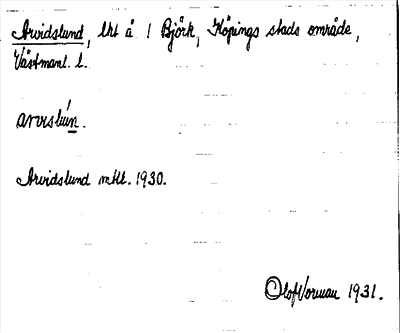 Arvidslund, lht å 1 Björk, Köpings stads område,
Västmanl. l.
arvislún.
Arvidslund mtll. 1930.
Olof Vorman 1931.